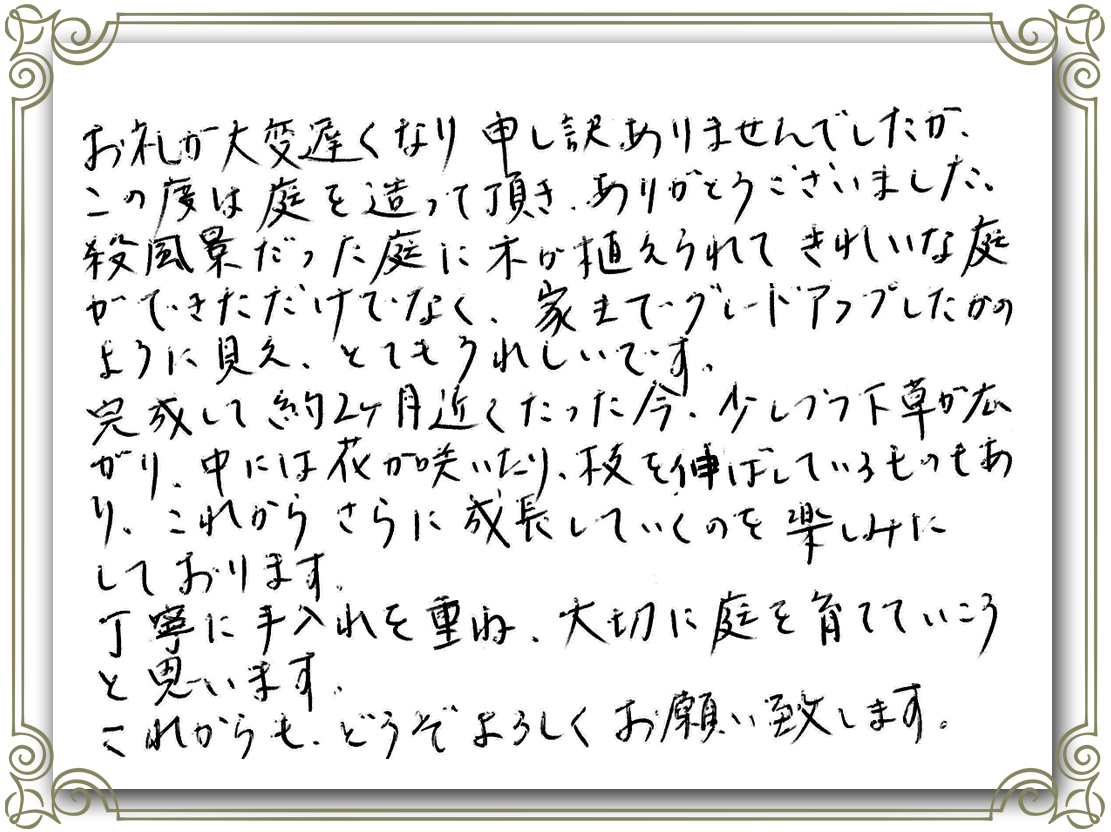 お礼が大変遅くなり申し訳ありませんでしたが、
この度は庭を造って頂き、ありがとうございました。
殺風景だった庭に木が植えられてきれいな庭
ができただけでなく、家までグレードアップしたかの
ように見え、とてもうれしいです。
完成して約2ヶ月近くたった今、少しづつ下草が広
がり、中には花が咲いたり、枝を伸ばしているものもあ
り、これからさらに成長していくのを楽しみに
しております。
丁寧に手入れを重ね、大切に庭を育てていこう
と思います。
これからも、どうぞよろしくお願い致します。